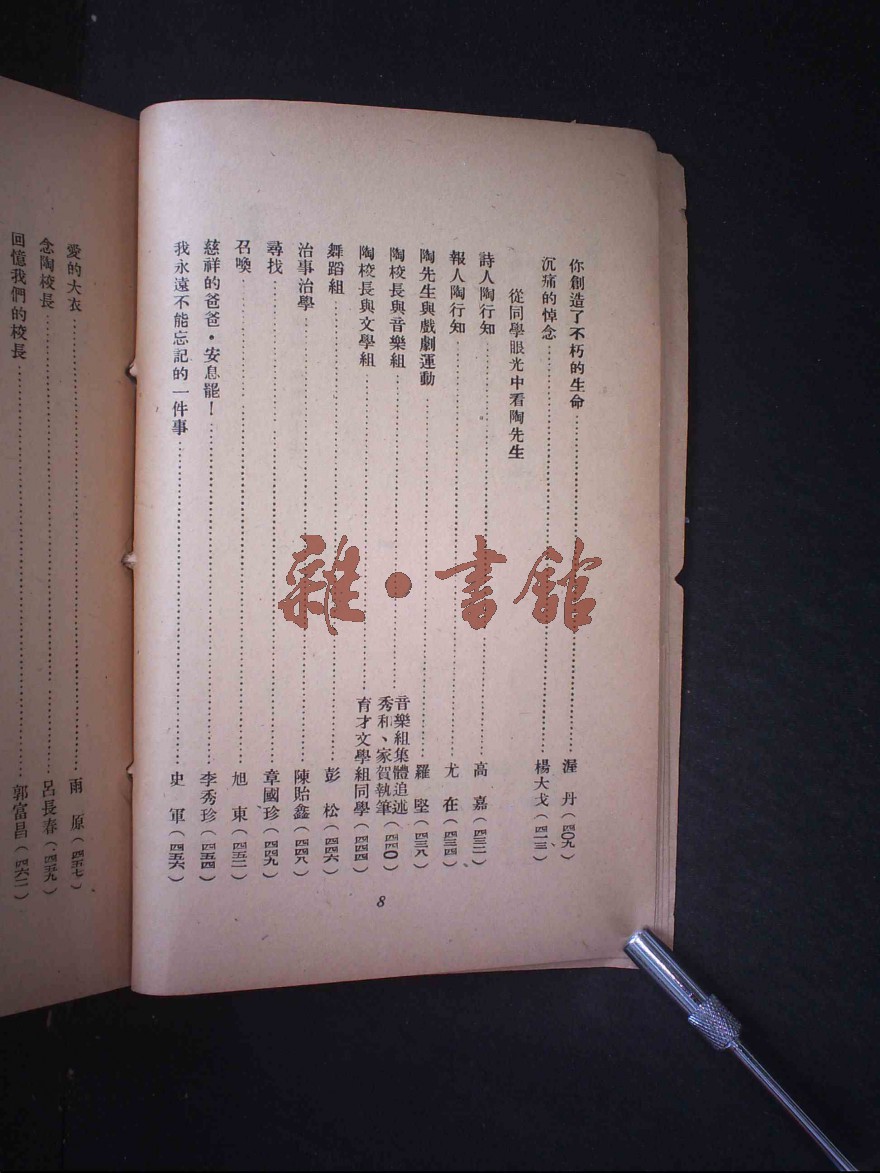 你創造了不朽的生命…………渥 丹(四〇九)
沉痛的悼念…………楊大戈(四一三)
從同學眼光中看陶先生
詩人陶行知…………高 嘉(四三二)
報人陶行知…………尤 在(四三四)
陶先生與戲劇運動…………羅 堅(四三八)
陶校長與音樂組…………音樂組集體追述 秀和、家賀執筆(四四〇)
陶校長與文學組…………育才文學組同學(四四四)
舞蹈組…………彭 松(四四六)
治事治學…………陳貽鑫(四四八)
尋找…………章國珍(四四九)
召喚…………旭 東(四五二)
慈祥的爸爸・安息罷!…………李秀珍(四五四)
我永遠不能忘記的一件事…………史 軍(四五六)
8
愛的大衣…………雨 原(四五七)
念陶校長…………呂長春(四五九)
回憶我們的校長…………郭富昌(四六二)
雜・書館